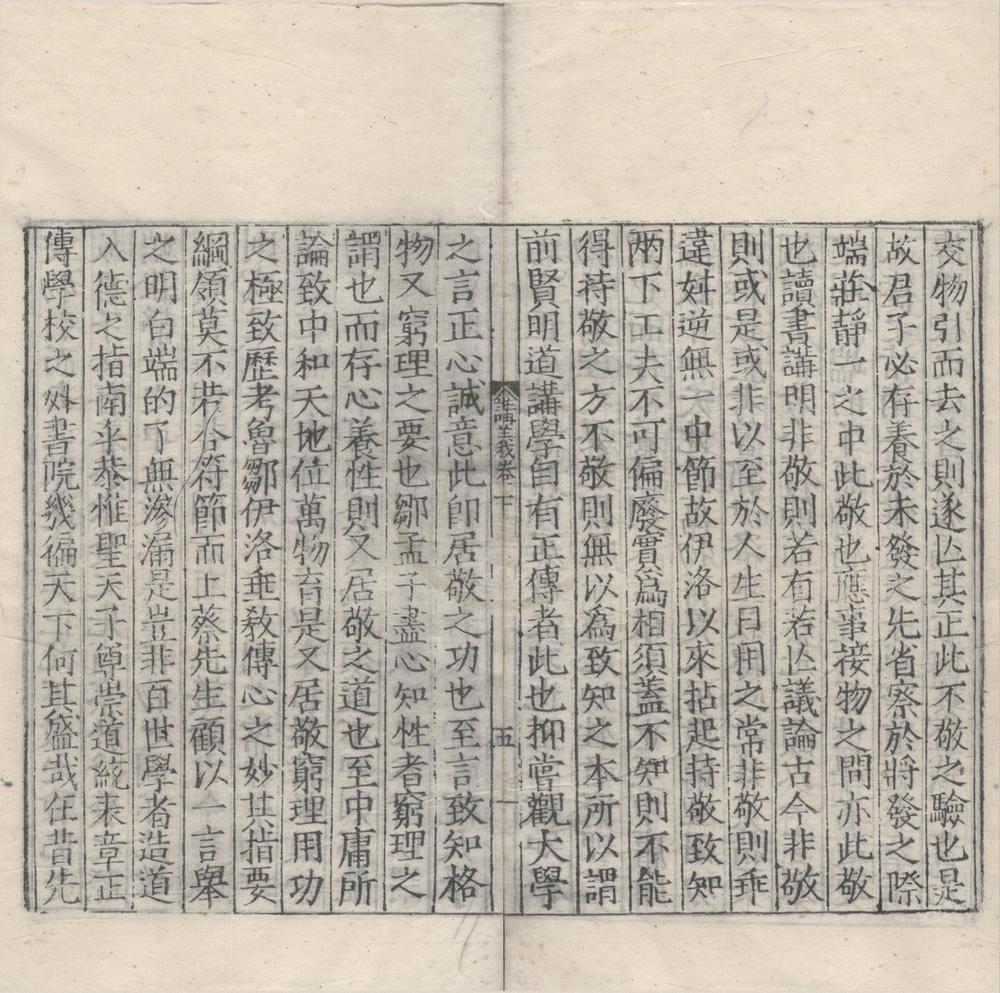 交物引而去之則遂亾其正此不敬之驗也是
故君子必存養於未發之先省察於將發之際
端莊靜一之中此敬也應事接物之間亦此敬
也讀書講明非敬則若有若亾議論古今非敬
則或是或非以至於人生日用之常非敬則乖
違舛逆無一中節故伊洛以來拈起持敬致知
兩下工夫不可偏廢實爲相須蓋不知則不能
得持敬之方不敬則無以爲致知之本所以謂
前賢明道講學自有正傳者此也抑嘗觀大學
講義卷下
五
之言正心誠意此即居敬之功也至言致知格
物又窮理之要也鄒孟子盡心知性者窮理之
謂也而存心養性則又居敬之道也至中庸所
論致中和天地位萬物育是又居敬窮理用功
之極致歷考魯鄒伊洛垂敎傳心之妙其指要
綱領莫不若合符節而上蔡先生顧以一言舉
之明白端的了無滲漏是豈非百世學者造道
入德之指南乎恭惟聖天子尊崇道統表章正
傳學校之外書院幾徧天下何其盛哉在昔先